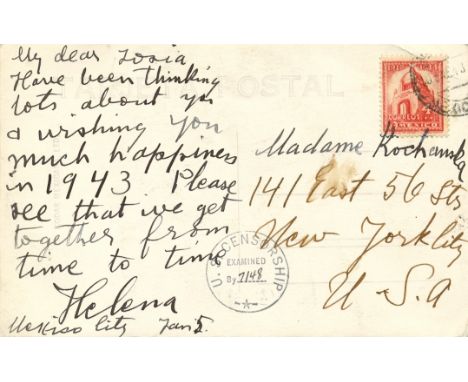 My dear Zosia
Have been thinking
lots about you
& wishing you
much happiness
in 1943 Please
see that we get
together from
time to time
Helena
Mexico City Jan 5.
POSTAL
MEXICO
Madame Kochanska
141 East 56 Str
New York City
U.S.A
U.S. CENSORSHIP
EXAMINED
By 7148